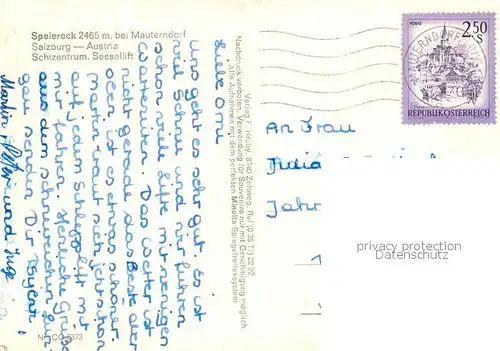 Speiereck 2465 m, bei Mauterndorf
Salzburg — Austria
Schizentrum, Sessellift
Liebe Omi
uns geht es sehr gut. Es ist
viel Schnee und wir fuhren
schon viele Lifte mit wenigen
Wartezeiten. Das Wetter ist
nicht gerade das Beste aber
oben ist es etwas schöner.
Martin traut sich jetzt schon
auf jedem Schlepplift mit
mir fahren. Herzliche Grüße
aus dem schneereichen Lun-
gau senden Dir
Martin und Inge
Nr. CO
Verlag F. Hruby, 8740 Zeltweg, Ruf (0 35 77) 22 92
Alle Aufnahmen mit dem perfekten Minolta Spiegelreflexsystem
Nachdruck verboten. Verwendung für Souvenirs nur mit Genehmigung möglich.
2.50
S
REPUBLIK ÖSTERREICH
An Frau
Julia
Jahr
1
1
privacy protection
Datenschutz